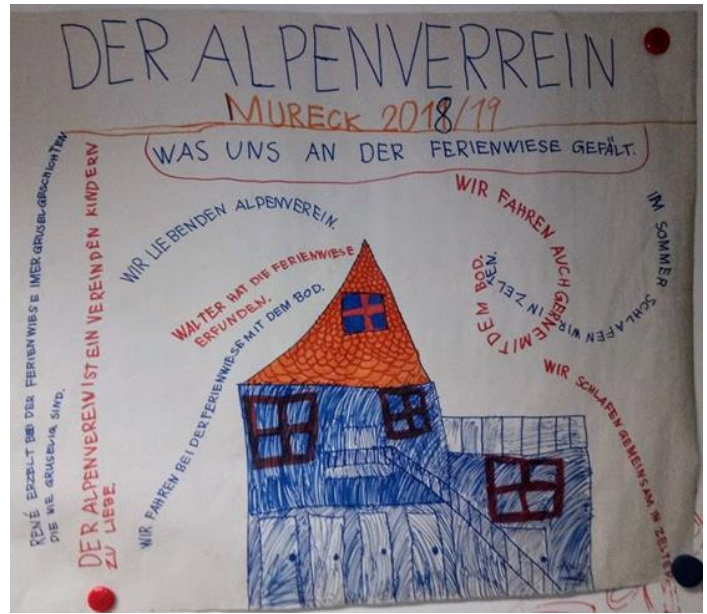 DER ALPENVERREIN
MURECK 2018/19
WAS UNS AN DER FERIENWIESE GEFÄLT.
RENÉ ERZELT BEI DER FERIENWIESE IMER GRUSELGESCHICHTEN
DIE NIE GRUSELIG SIND.
DER ALPENVEREIN IST EIN VEREIN DEN KINDERN
ZU LIEBE.
WIR LIEBEN DEN ALPENVEREIN.
WALTER HAT DIE FERIENWIESE
ERFUNDEN.
WIR FAHREN BEI DER FERIENWIESE MIT DEM BOD.
WIR FAHREN AUCH GERNE MIT DEM BOD.
IM SOMMER SCHLAFEN WIR IN ZELTEN.
WIR SCHLAFEN GEMEINSAM IN ZELTEN